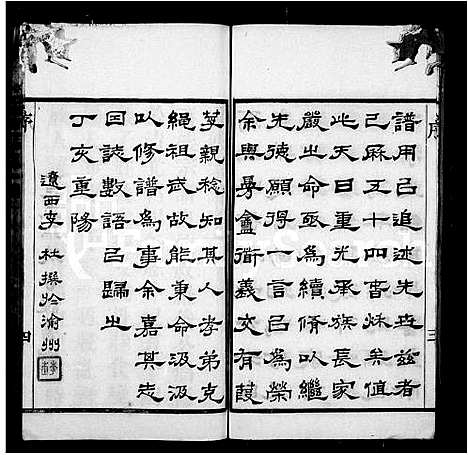 序
三
譜用㠯追述先世茲者
已歷五十四春秌矣值
此天日重光承族長家
嚴之命亟為續脩以繼
先德願得一言㠯為榮
余與勇盦衜義交有葭
莩親稔知其人孝弟克
繩祖武故能秉命汲汲
以修譜為事余嘉其志
因誌數語㠯歸之
丁亥重陽
遼西李杜撰於渝州
序
四